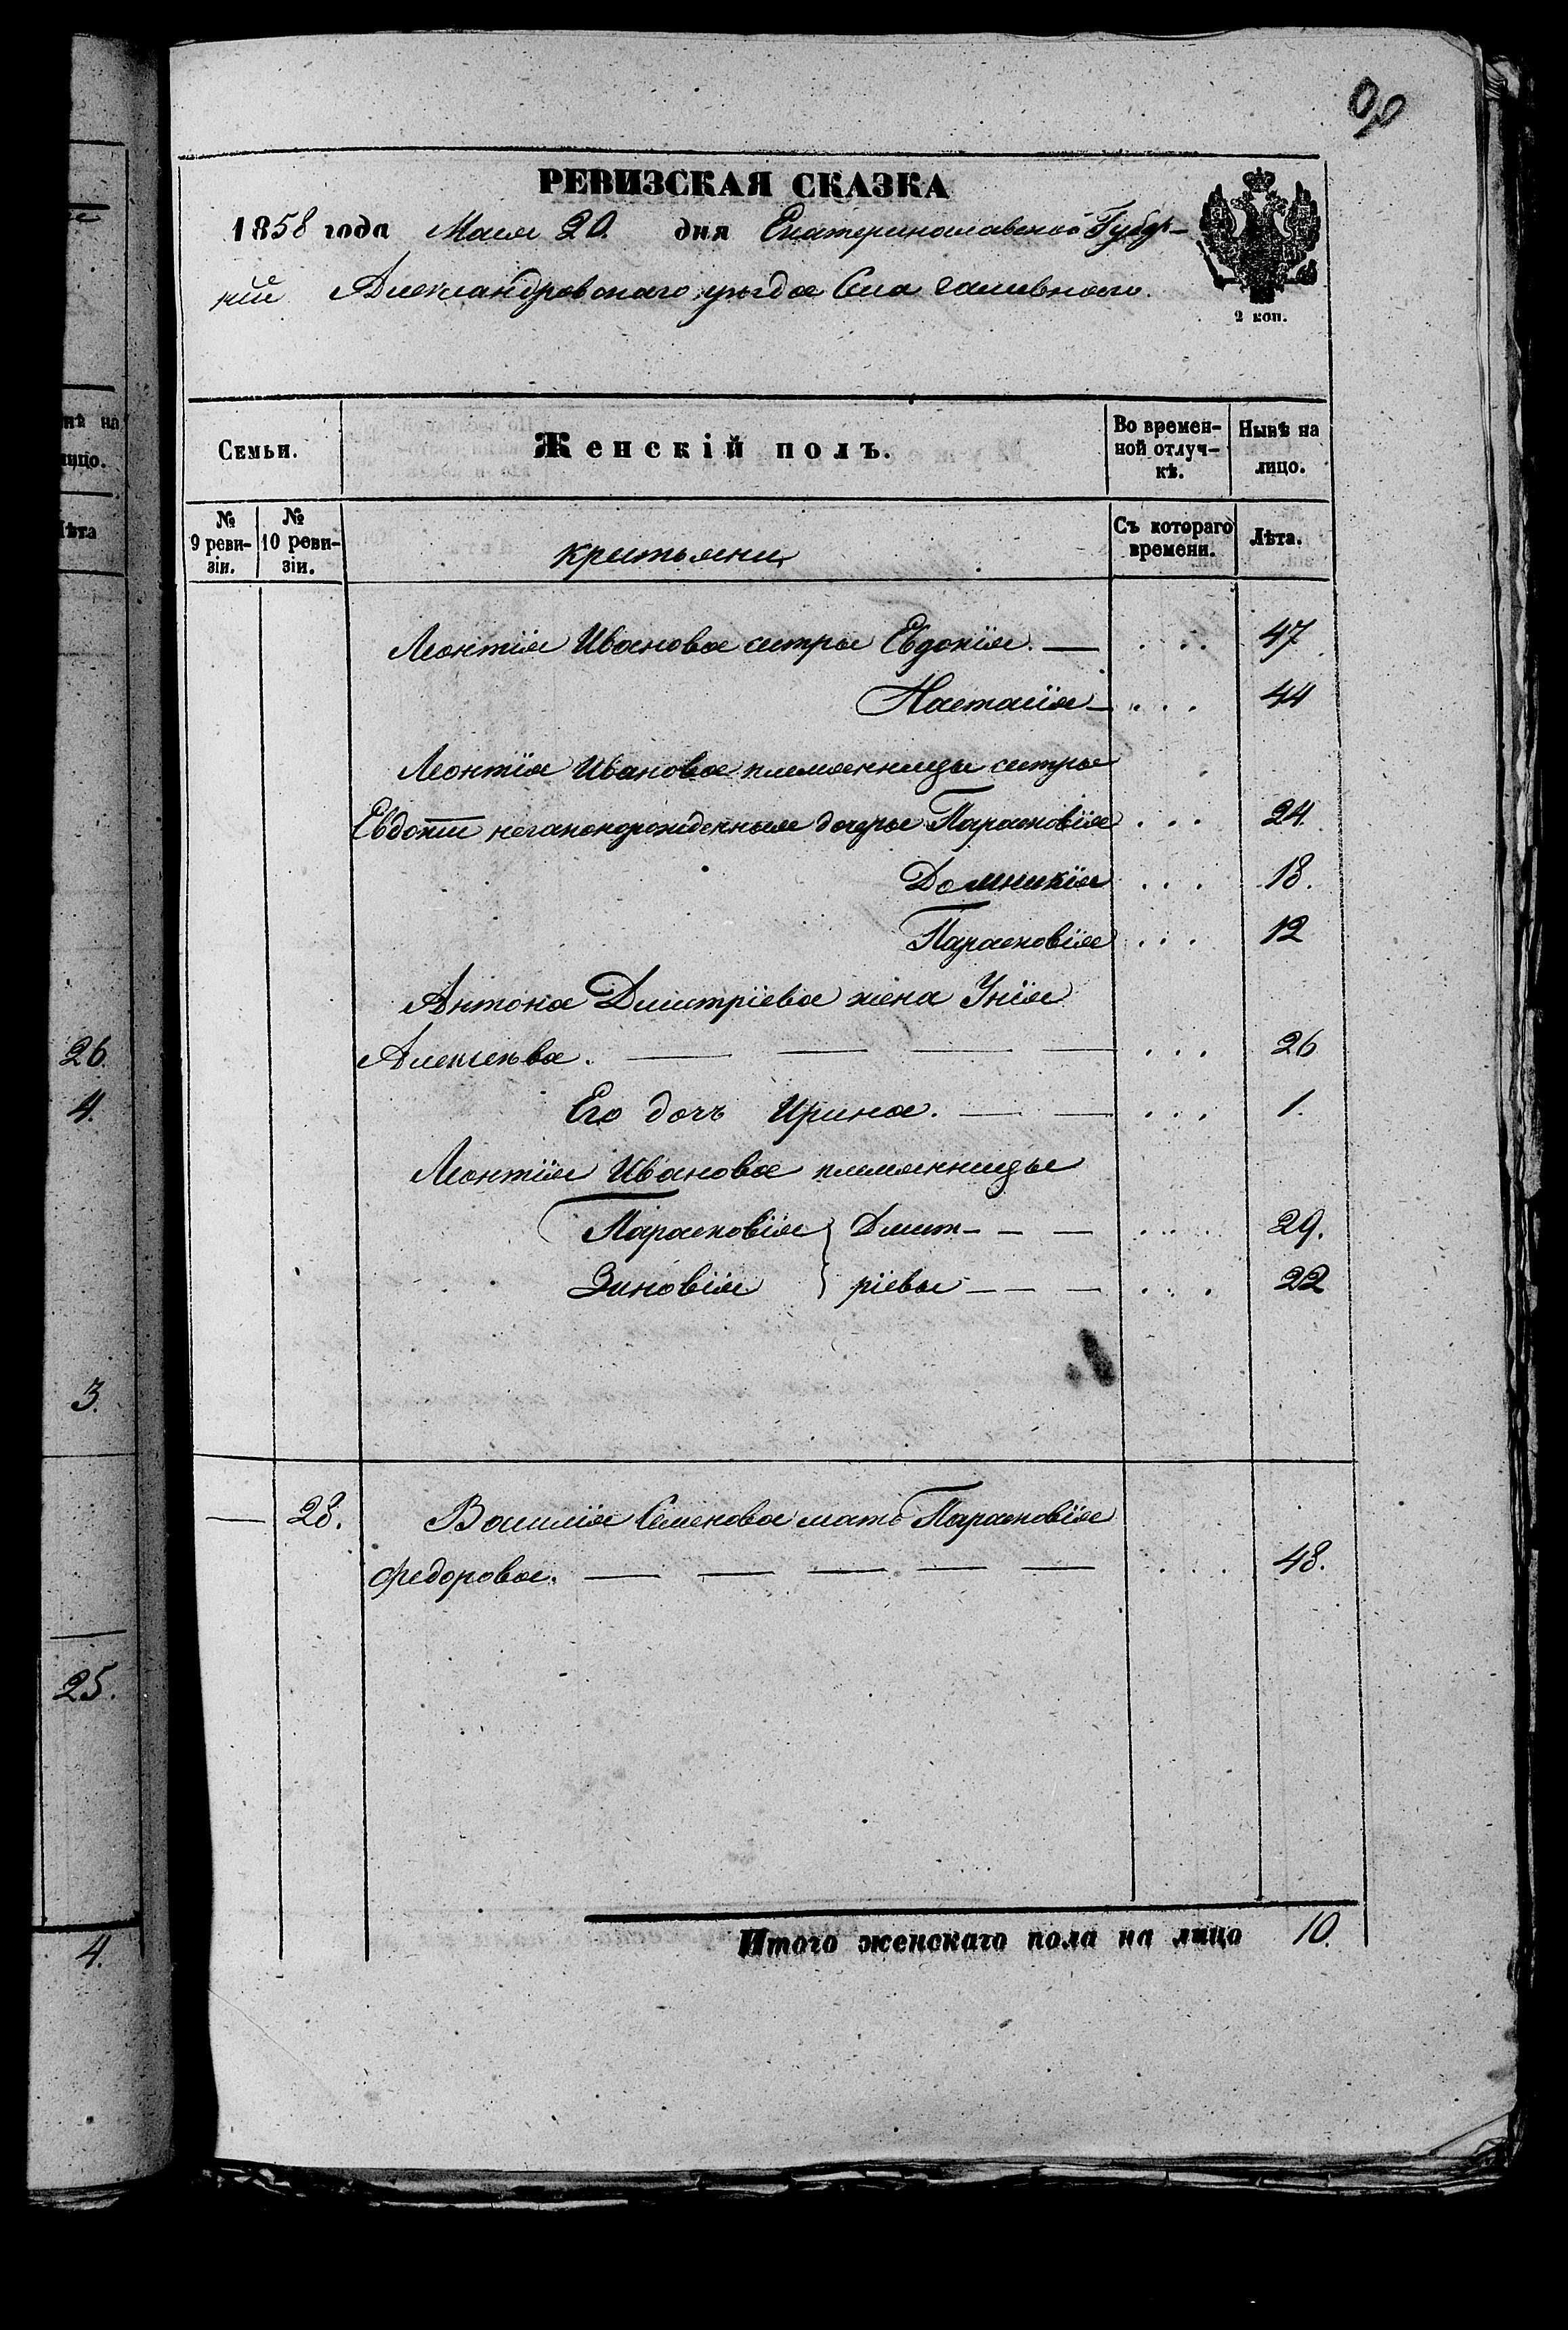 90
РЕВИЗСКАЯ СКАЗКА
1858 года Мая 20. дня Екатеринославской Губер-
нии Александровскаго уѣзда Села
2 коп.
Семьи. Женскій полъ. Во времен-ной отлуч-кѣ. Нынѣ на лицо.
№ 9 реви-зіи. № 10 реви-зіи. крестьяни Съ котораго времени. Лѣта.
Леонтія Иванова сестры Евдокія. — . . . 47
Настасія — . . . 44
Леонтія Иванова племянницы сестры
Евдокіи незаконорожденныя дочеры Парасковія . . . 24.
Домникія . . . 18.
Парасковія . . . 12
Антона Дмитріева жена Унія
Алексѣева. — — — — . . . 26
Его дочъ Ирина. — — . . . 1.
Леонтія Иванова племянницы
Парасковія } Дмит- — — . . . . 29.
Зиновія } ріевы — — — . . . 22
— 28. Василія Семенова мать Парасковія
Федорова. — — — — — . . . . 48.
Итого женскаго пола на лицо 10.
нѣ на
лицо.
Лѣта
26.
4.
3.
25.
4.